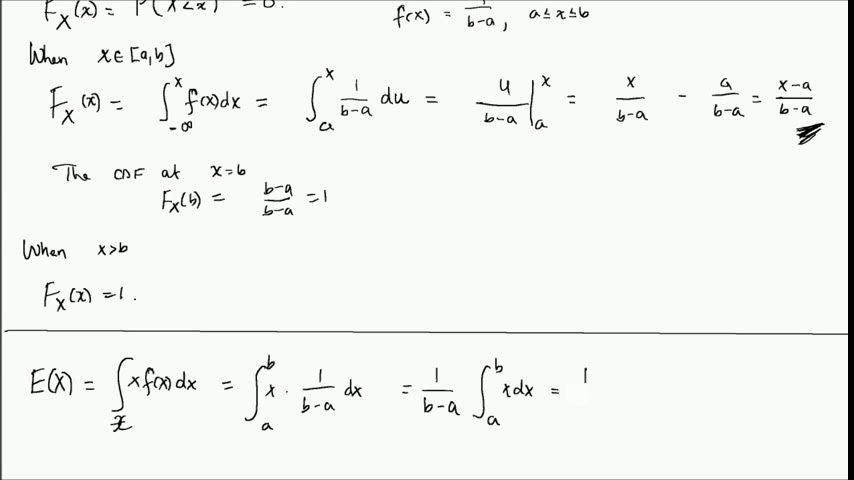 F_X(x) = P(X<x) = 0.
f(x) = 1/(b-a), a≤x≤b
When x∈[a,b]
F_X(x) = ∫_{-∞}^{x} f(x)dx = ∫_{a}^{x} 1/(b-a) du = u/(b-a) |_{a}^{x} = x/(b-a) - a/(b-a) = (x-a)/(b-a)
The CDF at x=b
F_X(b) = (b-a)/(b-a) = 1
When x>b
F_X(x) = 1.
E(X) = ∫_{x} x f(x) dx = ∫_{a}^{b} x · 1/(b-a) dx = 1/(b-a) ∫_{a}^{b} x dx = 1